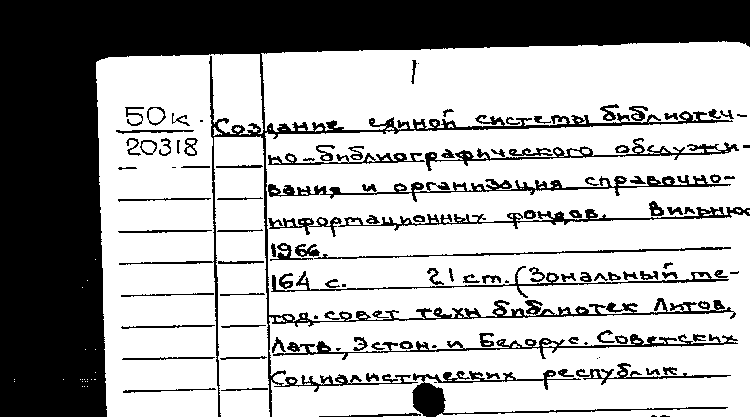 50к. Создание единой системы библиотеч-
20318 но-библиографического обслужи-
вания и организация справочно-
информационных фондов. Вильнюс
1966.
164 с. 21 ст. (Зональный ме-
тод. совет техн библиотек Литов.,
Латв., Эстон. и Белорус. Советских
Социалистических республик.